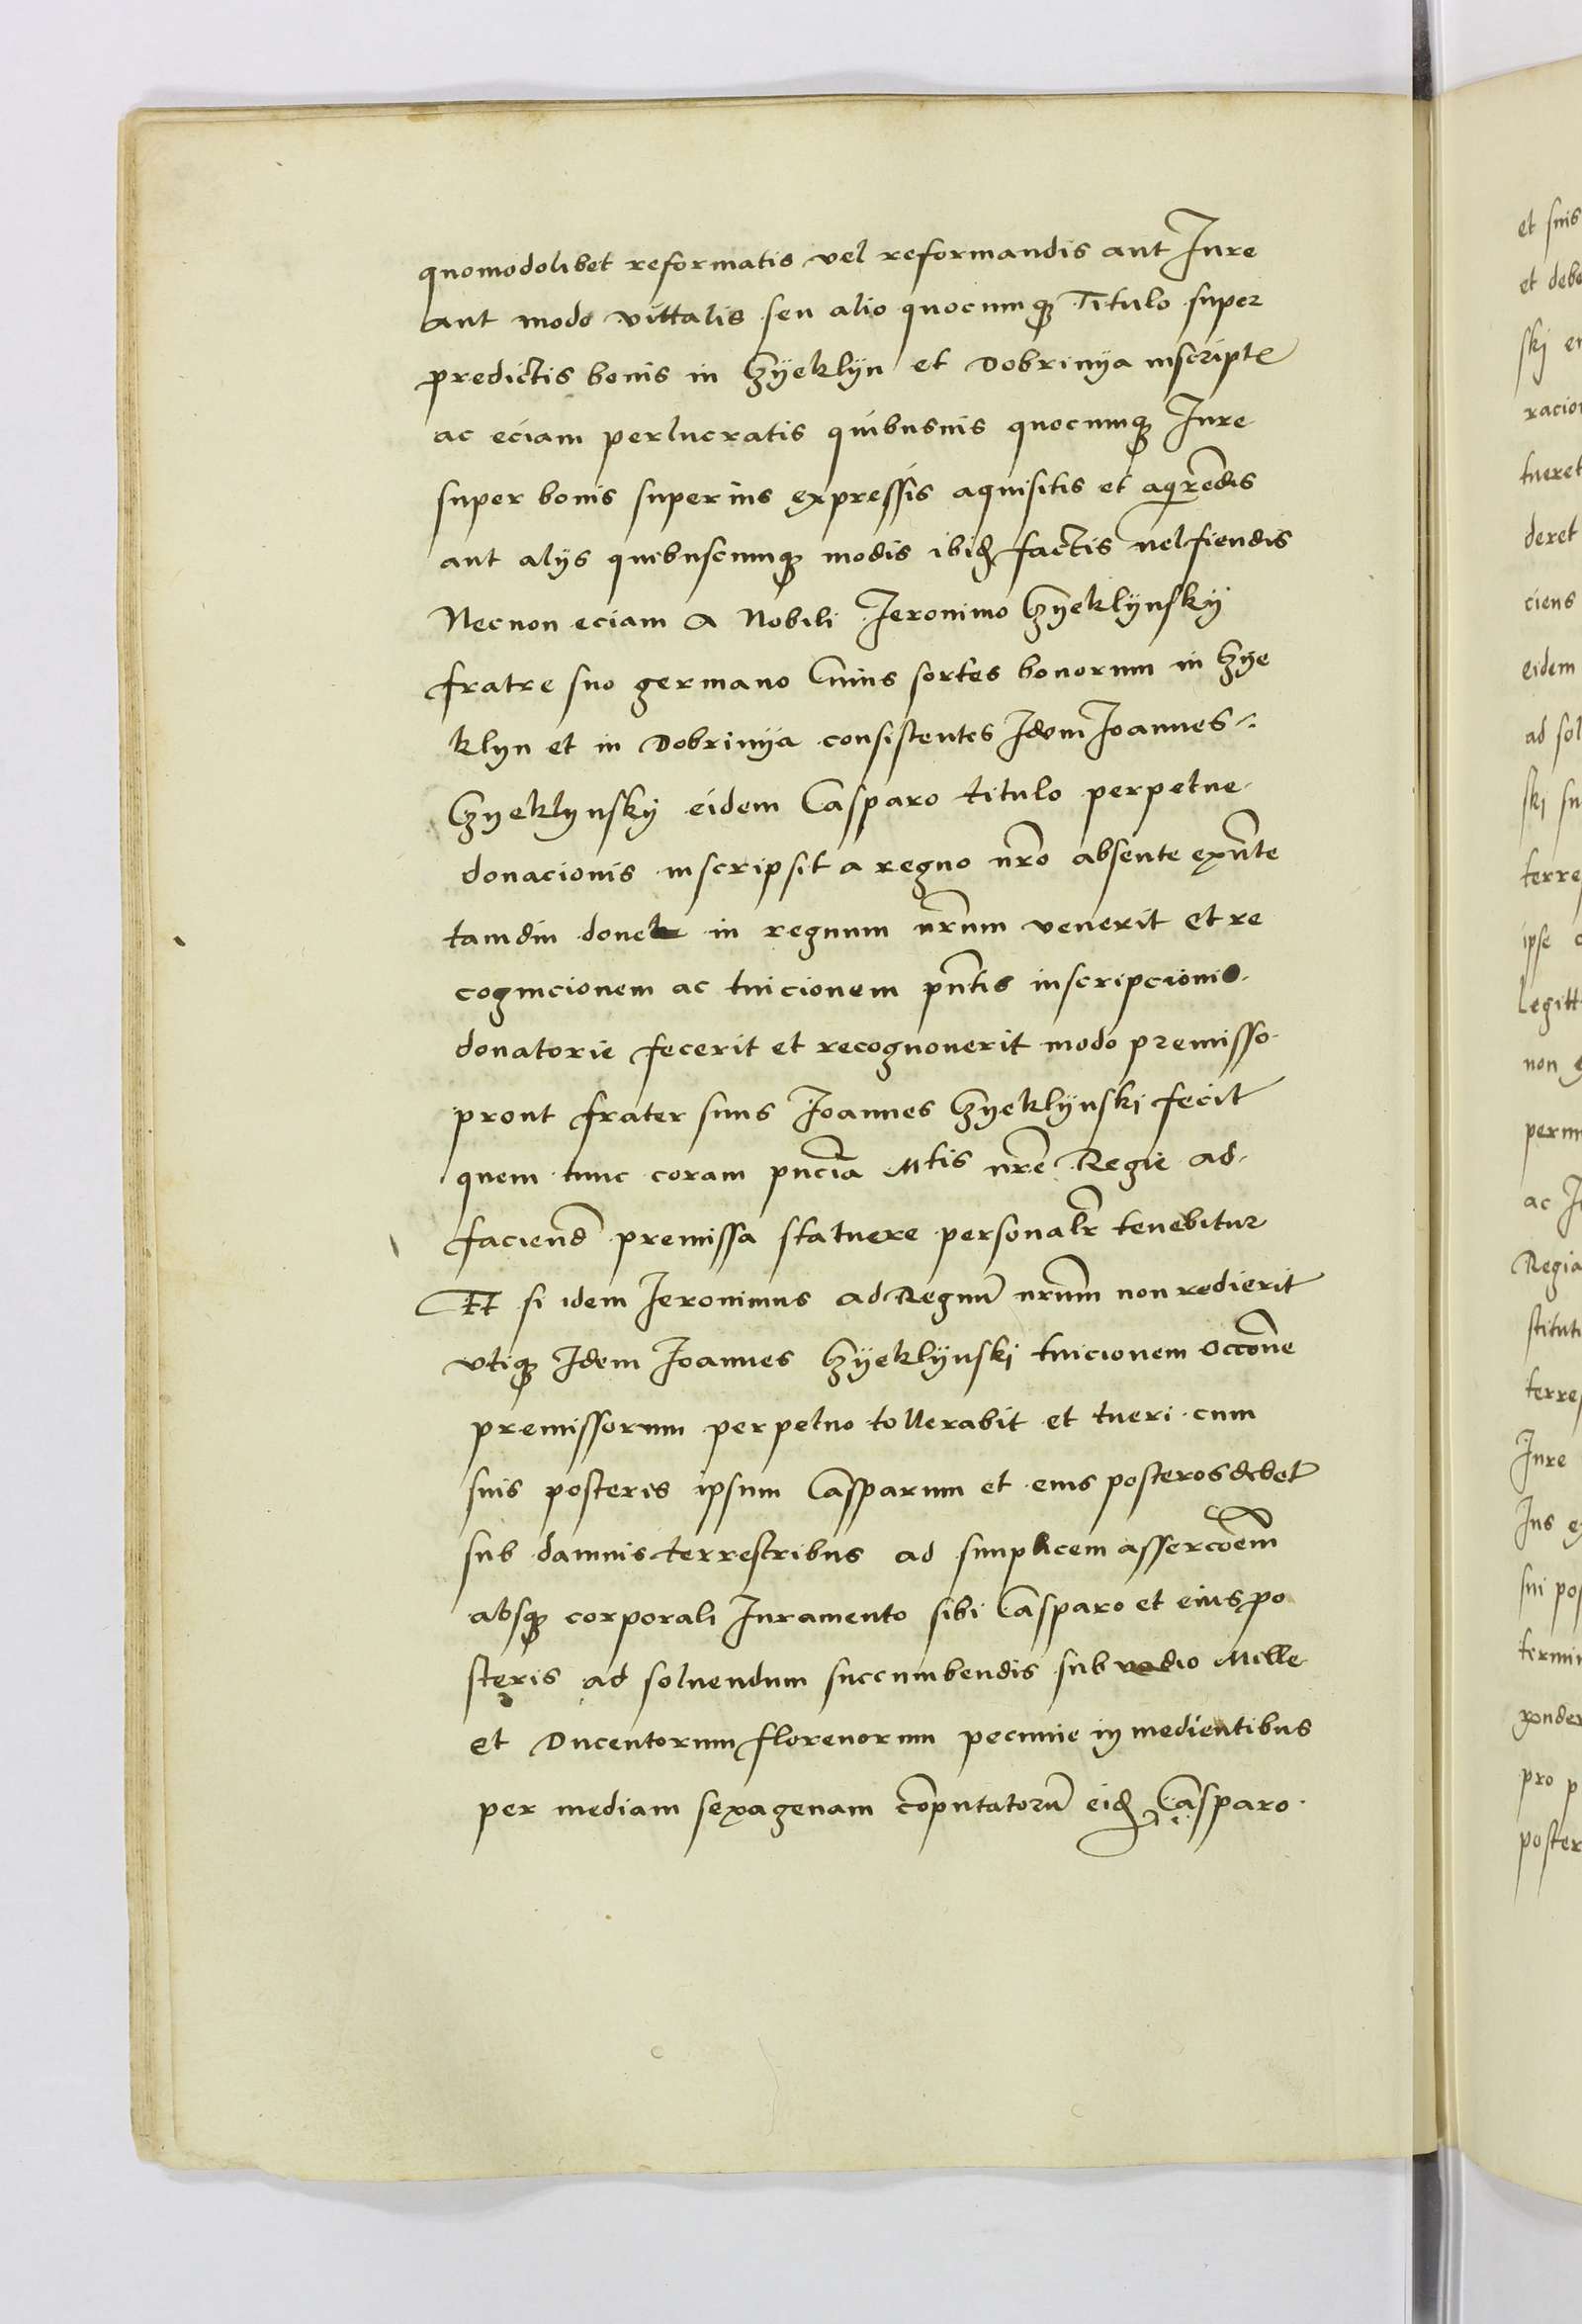 quomodolibet reformatis vel reformandis aut Iure
aut modo vittalis seu alio quocumqꝫ Titulo super
predictis bonis in Czyeklyn et Dobrinya inscript
ac eciam perlucratis quibusuis quocumqꝫ Iure
super bonis superius expressis aquisitis et aqrendis
aut alys quibuscumqꝫ modis ibidꝫ factis uel fiendis
Necnon eciam A Nobili Ieronimo Czyeklynsky
fratre suo germano Cuius sortes bonorum in Czye
klyn et in Dobrinya consistentes Idem Joannes
Czyeklynsky eidem Casparo titulo perpetue
donacionis inscripsit a regno nro absente exnte
tamdiu donec in regnum nrum venerit et re
cognicionem ac tuicionem pntis inscripcionis
donatorie fecerit et recognouerit modo premisso
prout frater suus Joannes Czyeklynski fecit
quem tunc coram pncia Mtis nre Regie ad
faciend premissa statuere personalr tenebitur
Et si idem Ieronimus ad Regnu nrum non redierit
vtiqꝫ Idem Joannes Czyeklynski tuicionem occone
premissorum perpetuo tollerabit et tueri cum
suis posteris ipsum Casparum et eius posteros debet
sub damnis terrestribus ad simplicem assercoem
absqꝫ corporali Iuramento sibi Casparo et eius po
steris ad soluendum succumbendis sub vadio Mille
et Ducentorum florenorum pecunie in medientibus
per mediam sexagenam computatoru eidꝫ Casparo
et suis
et deb
ski
racio
tueret
deret
ciens
eidem
ad sol
ski su
terre
ipse
legitt
non
perm
ac
Regia
stitut
terre
Iure
Ius
sui pos
termi
ponder
pro p
poster